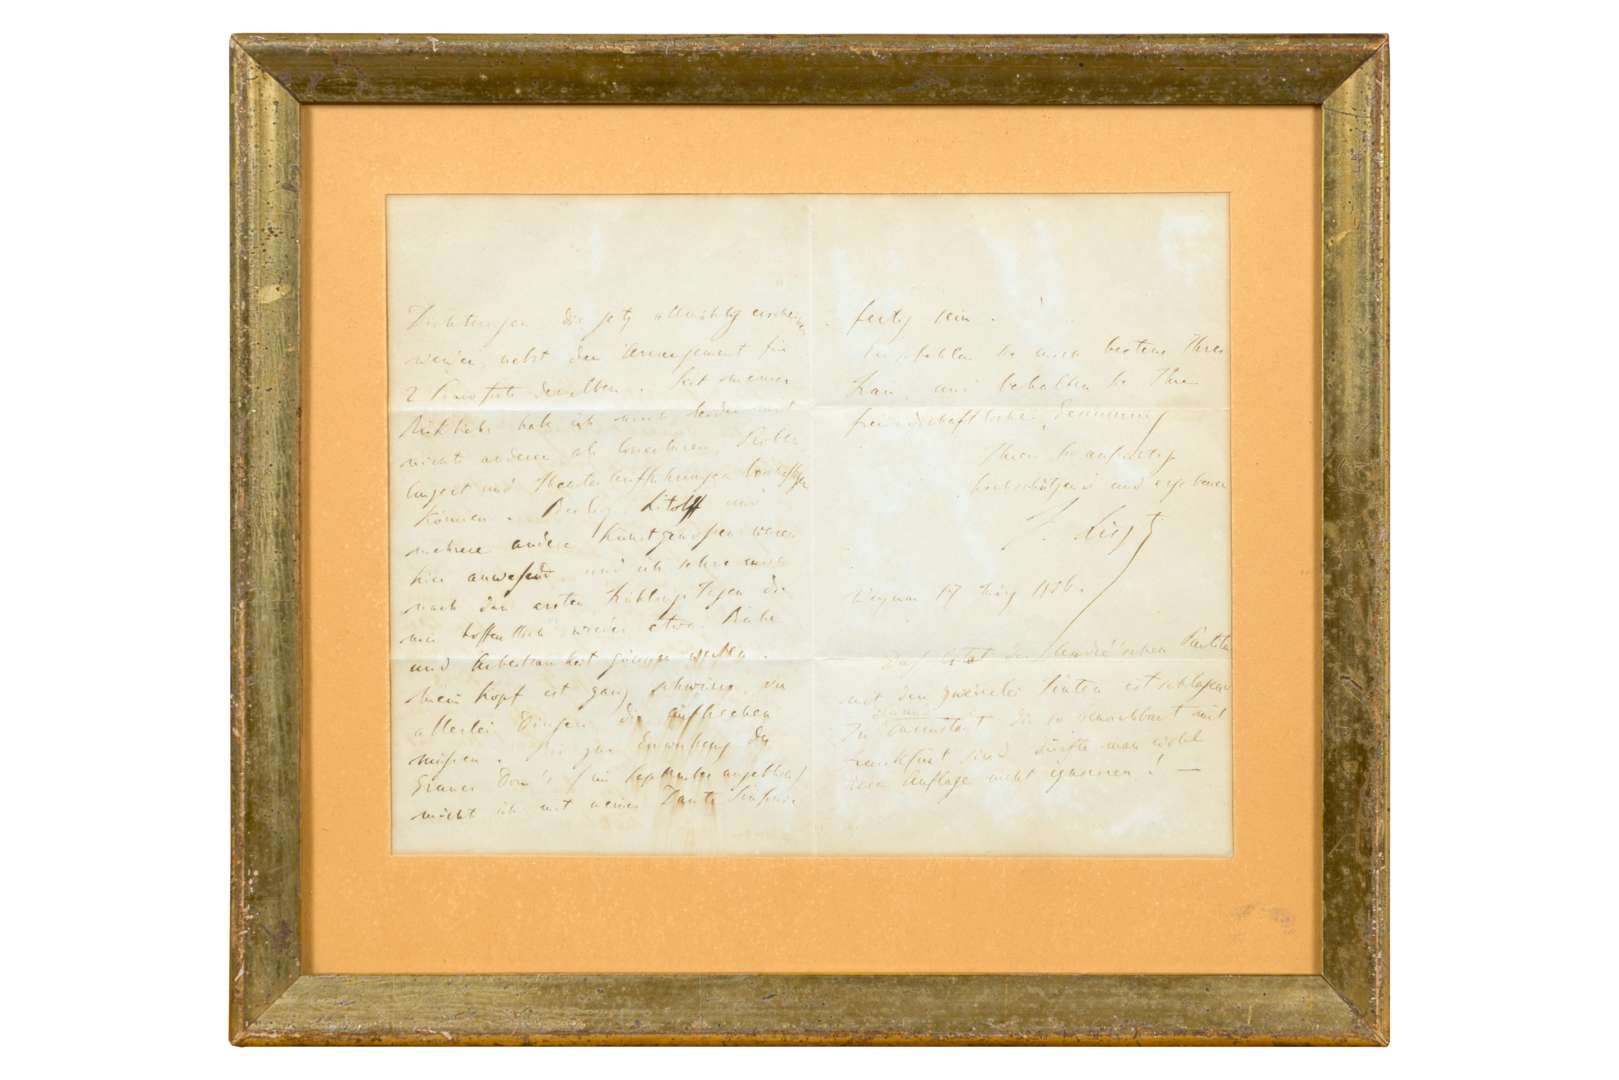 Dichtungen die jetzt allmählig erscheinen
werden, nebst den Arrangement für
2 Pianoforte derselben. Seit meiner
Rückkehr hab ich mich leider mit
nichts anderem als Concerten, Proben
und Theater Aufführungen beschäftigen
können. Berlioz, Litolff und
mehrere andere Kunstgenossen waren
hier anwesend, und ich sehne mich
nach den ersten Frühlings Tagen die
mir hoffentlich wieder etwas Ruhe
und Arbeitsamkeit gönnen werden.
Mein Kopf ist ganz schwirr von
allerlei Dingen die
müssen. Bis zur Einweihung des
Graner Dom's (im September angeblich)
möcht ich mit meiner Dante Sinfonie
fertig sein.
Empfehlen Sie mich bestens Ihrer
Frau, und behalten Sie Ihre
freundschaftliche Gesinnung
Ihrem Sie aufrichtig
hochschätzend und ergebenen
F. Liszt
Weymar 17 März 1856.
Das Citat der Partitur
mit den zweierlei Tinten ist
zu die so benachbart mit
Frankfurt sind dürfte man wohl
diese Auflage nicht ignoriren! —